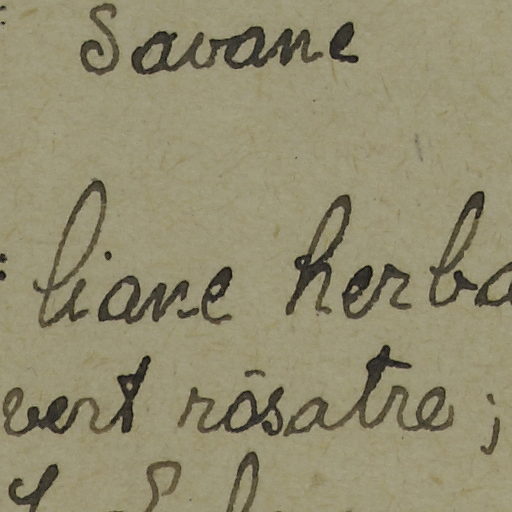 Savane
liane herba
vert rôsatre ;